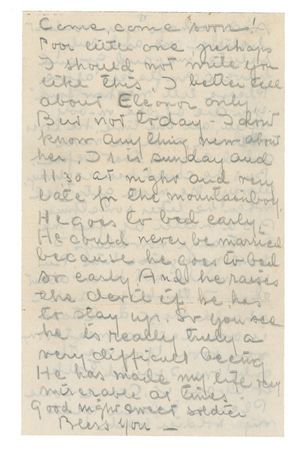 Come, come soon!
Poor little one perhaps
I should not write you
like this. I better tell
about Eleonor only
But, not today. I don't
know anything new about
her. It is Sunday and
11:30 at night and very
late for the mountainboy.
He goes to bed early.
He could never be married
because he goes to bed
so early And he raises
the devil if he has
to stay up. So you see
he is really truly a
very difficult being
He has made my life very
miserable at times.
Good night sweet soldier
Bless you —